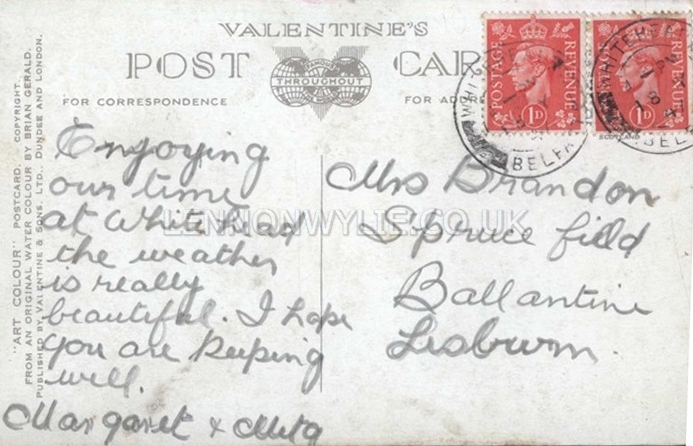 VALENTINE'S
POST CARD
FAMOUS THROUGHOUT THE WORLD
FOR CORRESPONDENCE
FOR ADDR
POSTAGE REVENUE
1D
POSTAGE REVENUE
1D
WHITEHEAD
BELFAST
BELFA
SCOTLAND
"ART COLOUR" POSTCARD. COPYRIGHT.
FROM AN ORIGINAL WATER COLOUR BY BRIAN GERALD.
PUBLISHED BY VALENTINE & SONS, LTD., DUNDEE AND LONDON.
Enjoying
our time
at Whitehead
the weather
is really
beautiful. I hope
you are keeping
well.
Margaret &
Mrs Brandon
Spruce field
Ballantine
Lisburn.
LENNONWYLIE.CO.UK